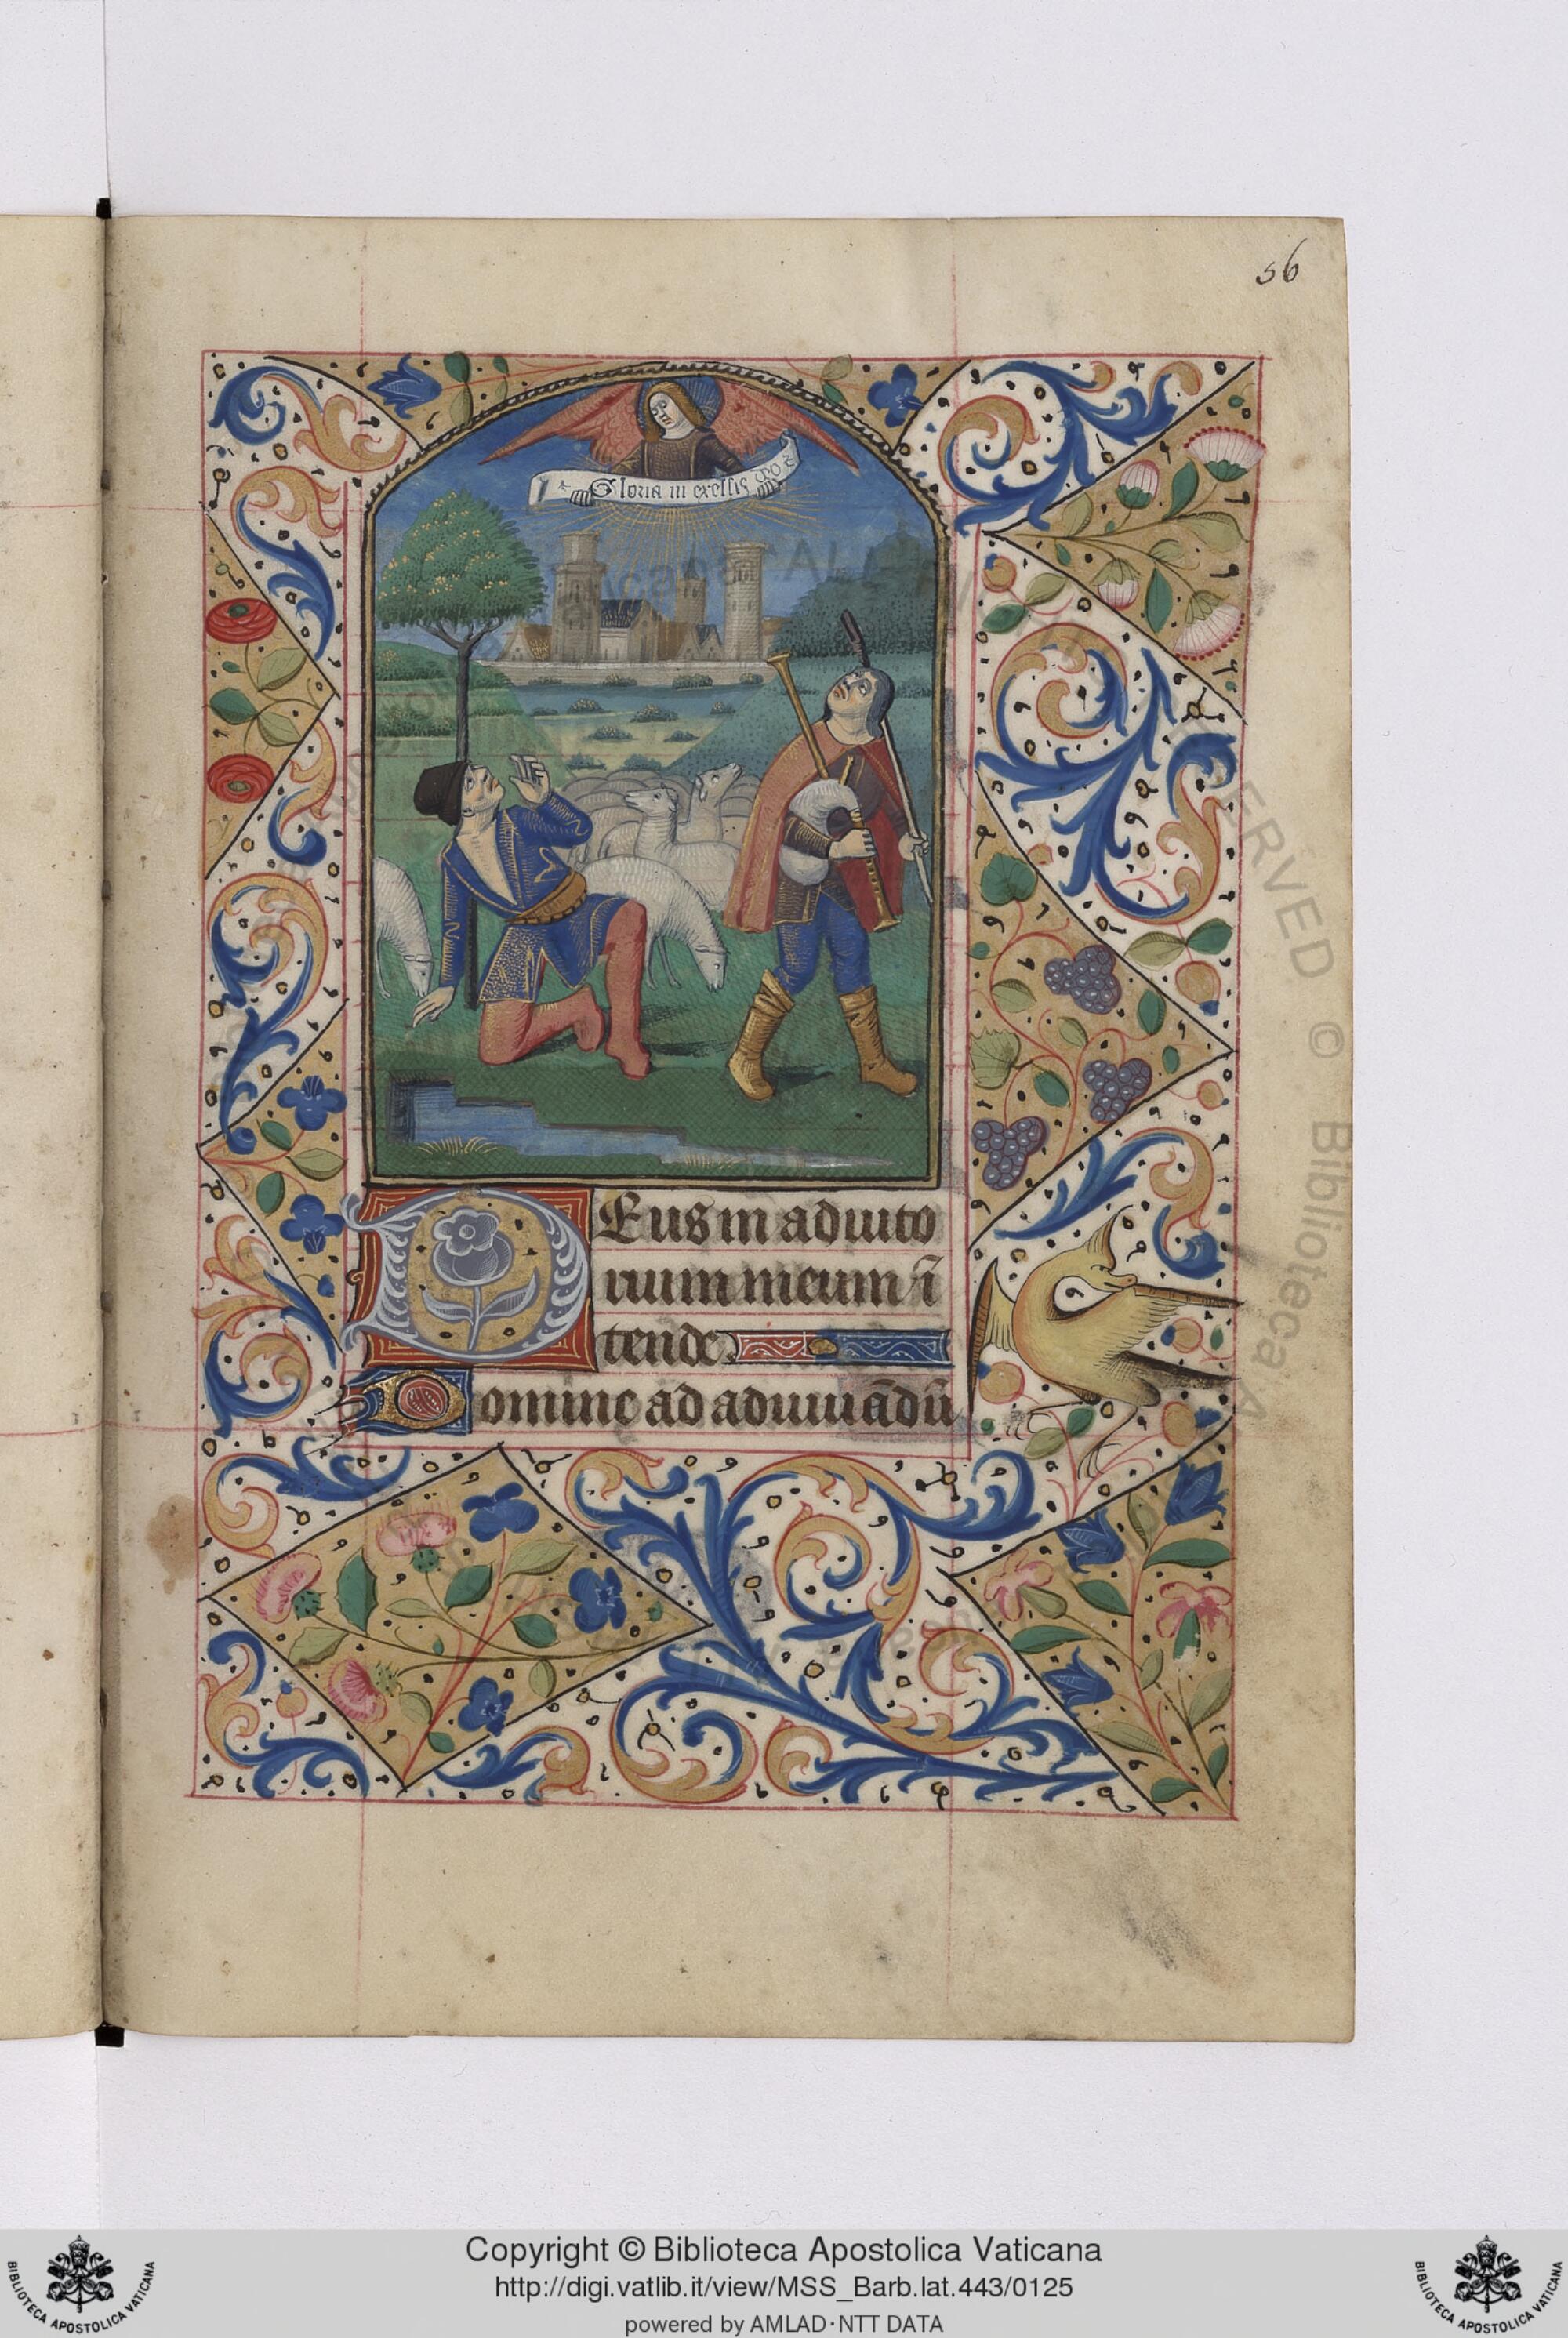 56
Gloria in excelsis deo
Deus in adiuto
rium meum ī
tende.
Domine ad adiuuādū
Copyright © Biblioteca Apostolica Vaticana
http://digi.vatlib.it/view/MSS_Barb.lat.443/0125
powered by AMLAD·NTT DATA
BIBLIOTECA APOSTOLICA VATICANA
BIBLIOTECA APOSTOLICA VATICANA